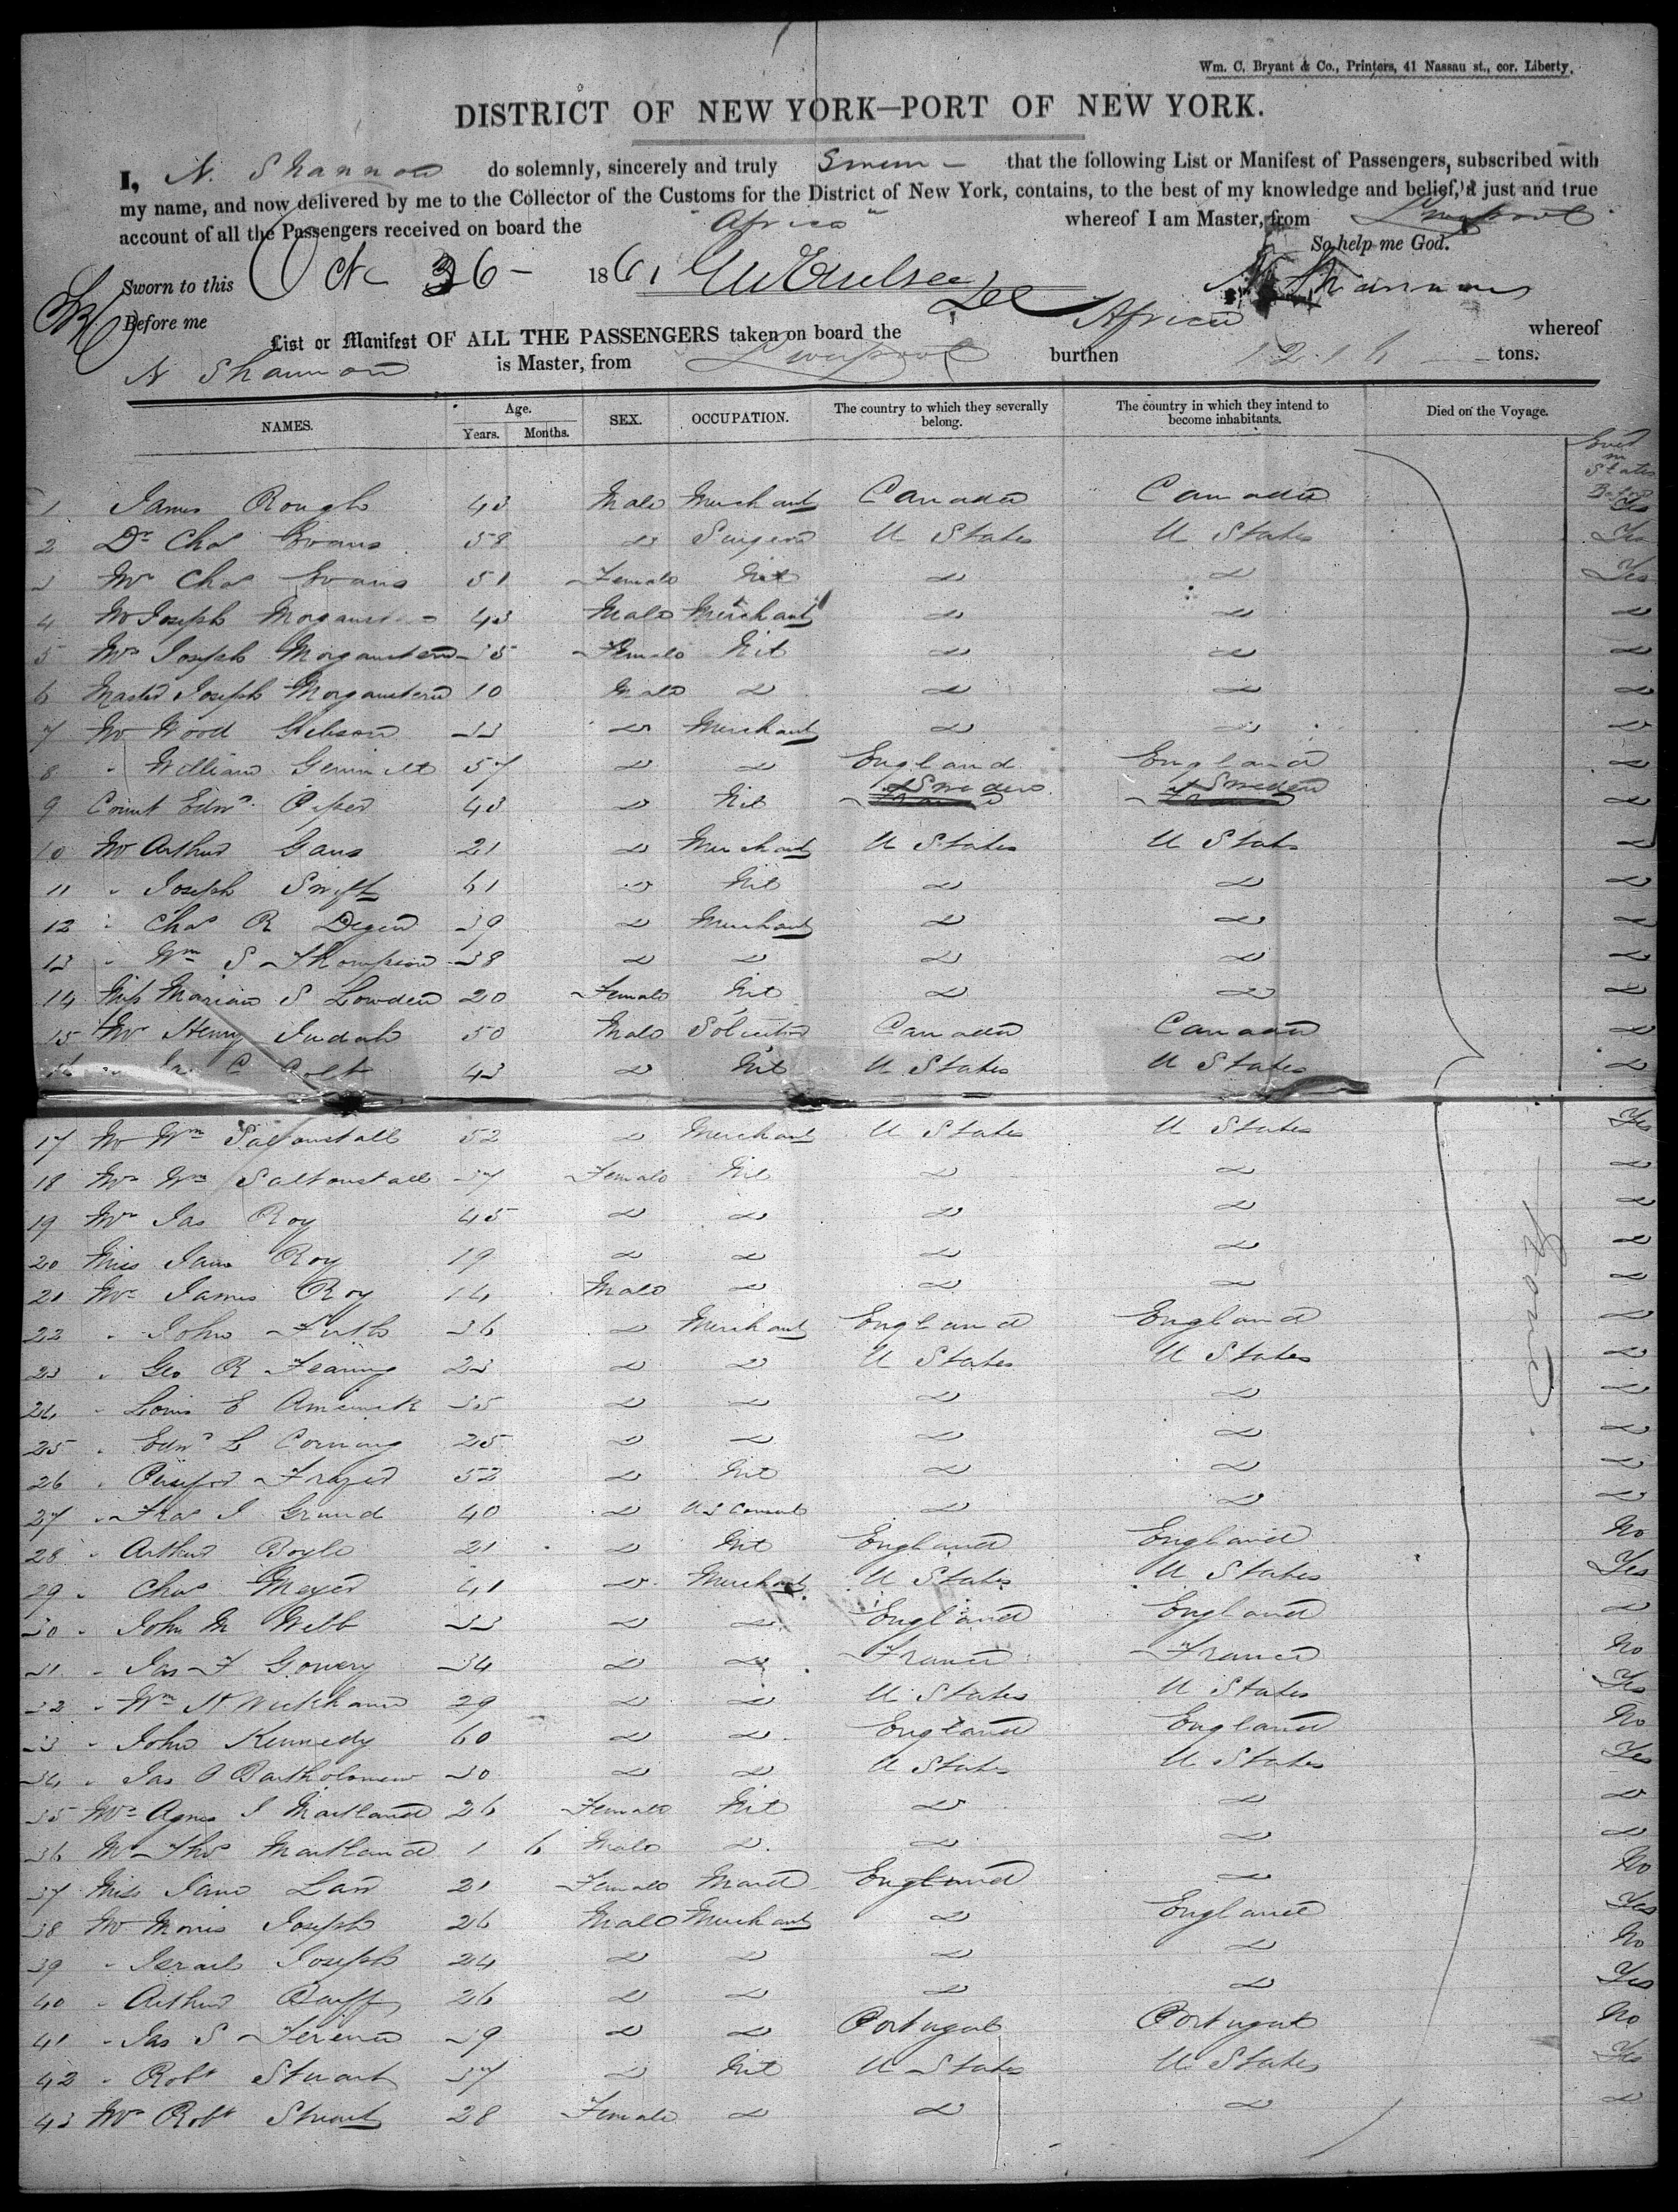 Wm. C. Bryant & Co., Printers, 41 Nassau st., cor. Liberty.
DISTRICT OF NEW YORK—PORT OF NEW YORK.
I, N. Shannon do solemnly, sincerely and truly Swear — that the following List or Manifest of Passengers, subscribed with
my name, and now delivered by me to the Collector of the Customs for the District of New York, contains, to the best of my knowledge and belief, a just and true
account of all the Passengers received on board the "Africa" whereof I am Master, from Liverpool
So help me God.
Sworn to this Oct 26 - 1861 N Shannon
Before me
List or Manifest OF ALL THE PASSENGERS taken on board the Africa whereof
N Shannon is Master, from Liverpool burthen tons.
NAMES. Age. Years. Months. SEX. OCCUPATION. The country to which they severally belong. The country in which they intend to become inhabitants. Died on the Voyage.
1 James Rough 43 Male Merchant Canada Canada Yes
2 Dr Chas Evans 58 " Surgeon U States U States Yes
3 Mrs Chas Evans 51 Female Nil " " Yes
4 Mr Joseph Morganstern 43 Male Merchant " " "
5 Mrs Joseph Morganstern 35 Female Nil " " "
6 Master Joseph Morganstern 10 Male " " " "
7 Mr Wood Gibson 33 " Merchant " " "
8 " William 57 " " England England "
9 Count Edwd Piper 43 " Nil Sweden Sweden "
10 Mr Arthur Gans 21 " Merchant U States U States "
11 " Joseph Swift 61 " Nil " " "
12 " Chas R Degen 39 " Merchant " " "
13 " Wm S Thompson 38 " " " " "
14 Miss Marian S Lowden 20 Female Nil " " "
15 Mr Henry Judah 50 Male Solicitor Canada Canada "
16 " C Colt 43 " Nil U States U States "
17 Mr Wm Saltonstall 52 " Merchant U States U States Yes
18 Mrs Wm Saltonstall 37 Female Nil " " "
19 Mrs Jas Roy 45 " " " " "
20 Miss Jane Roy 19 " " " " "
21 Mr James Roy 14 Male " " " "
22 " John Firth 36 " Merchant England England "
23 " Geo R Fearing 23 " " U States U States "
24 " Louis E Amsinck 35 " " " " "
25 " Edwd L Corning 25 " " " " "
26 " Frazer 52 " Nil " " "
27 " Fras J Grund 40 " U S Consul " " "
28 " Arthur Boyle 21 " Nil England England No
29 " Chas Meyer 41 " Merchant U States U States Yes
30 " John M Webb 33 " " England England "
31 " Jas F Gowery 34 " " France France No
32 " Wm H Wickham 29 " " U States U States Yes
33 " John Kennedy 60 " " England England No
34 " Jas O Bartholomew 30 " " U States U States Yes
35 Mrs Agnes J Maitland 26 Female Nil " " "
36 Mr Thos Maitland 1 6 Male " " " "
37 Miss Jane Law 21 Female Maid England " No
38 Mr Morris Joseph 26 Male Merchant " England Yes
39 " Israel Joseph 24 " " " " No
40 " Arthur Barff 26 " " " " Yes
41 " Jas S 39 " " Portugal Portugal No
42 " Robt Stuart 37 " Nil U States U States Yes
43 Mrs Robt Stuart 28 Female " " " "